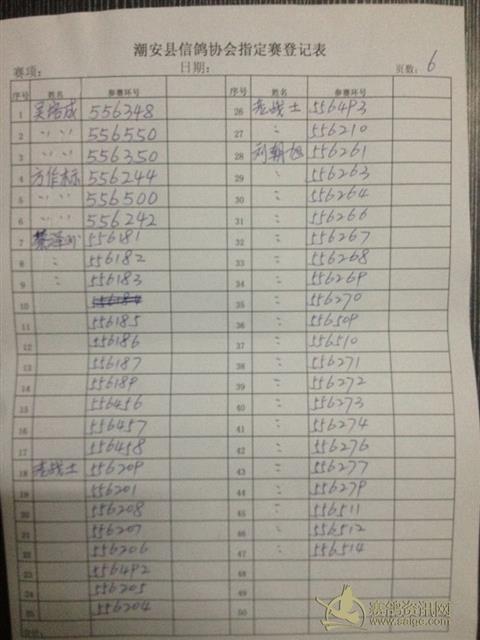 潮安县信鸽协会指定赛登记表
赛项: 日期: 页数: 6
序号 姓名 参赛环号 序号 姓名 参赛环号
1 吴培成 556348 26 老战士 556493
2 〃 〃 556550 27 〃 556210
3 〃 〃 556350 28 刘朝旭 556261
4 方作标 556244 29 〃 556263
5 〃 〃 556500 30 〃 556264
6 〃 〃 556242 31 〃 556266
7 556181 32 〃 556267
8 〃 556182 33 〃 556268
9 〃 556183 34 〃 556269
10 556184 35 〃 556270
11 556185 36 〃 556509
12 556186 37 〃 556510
13 556187 38 〃 556271
14 556189 39 〃 556272
15 556456 40 〃 556273
16 556457 41 〃 556274
17 556458 42 〃 556276
18 老战士 556209 43 〃 556277
19 556201 44 〃 556279
20 556208 45 〃 556511
21 556207 46 〃 556512
22 556206 47 〃 556514
23 556492 48
24 556205 49
25 556204 50
赛鸽资讯网
www.saige.com